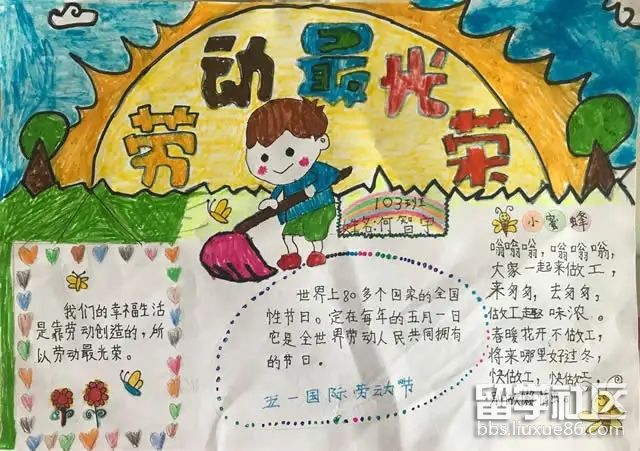 劳动最光荣
103班
姓名:何智宇
我们的幸福生活
是靠劳动创造的,所
以劳动最光荣。
世界上80多个国家的全国
性节日。定在每年的五月一日
它是全世界劳动人民共同拥有
的节日。
五一国际劳动节
小蜜蜂
嗡嗡嗡,嗡嗡嗡,
大家一起来做工,
来匆匆,去匆匆,
做工趣味浓。
春暖花开不做工,
将来哪里好过冬,
快做工,快做工
留学社区
bbs.liuxue86.com